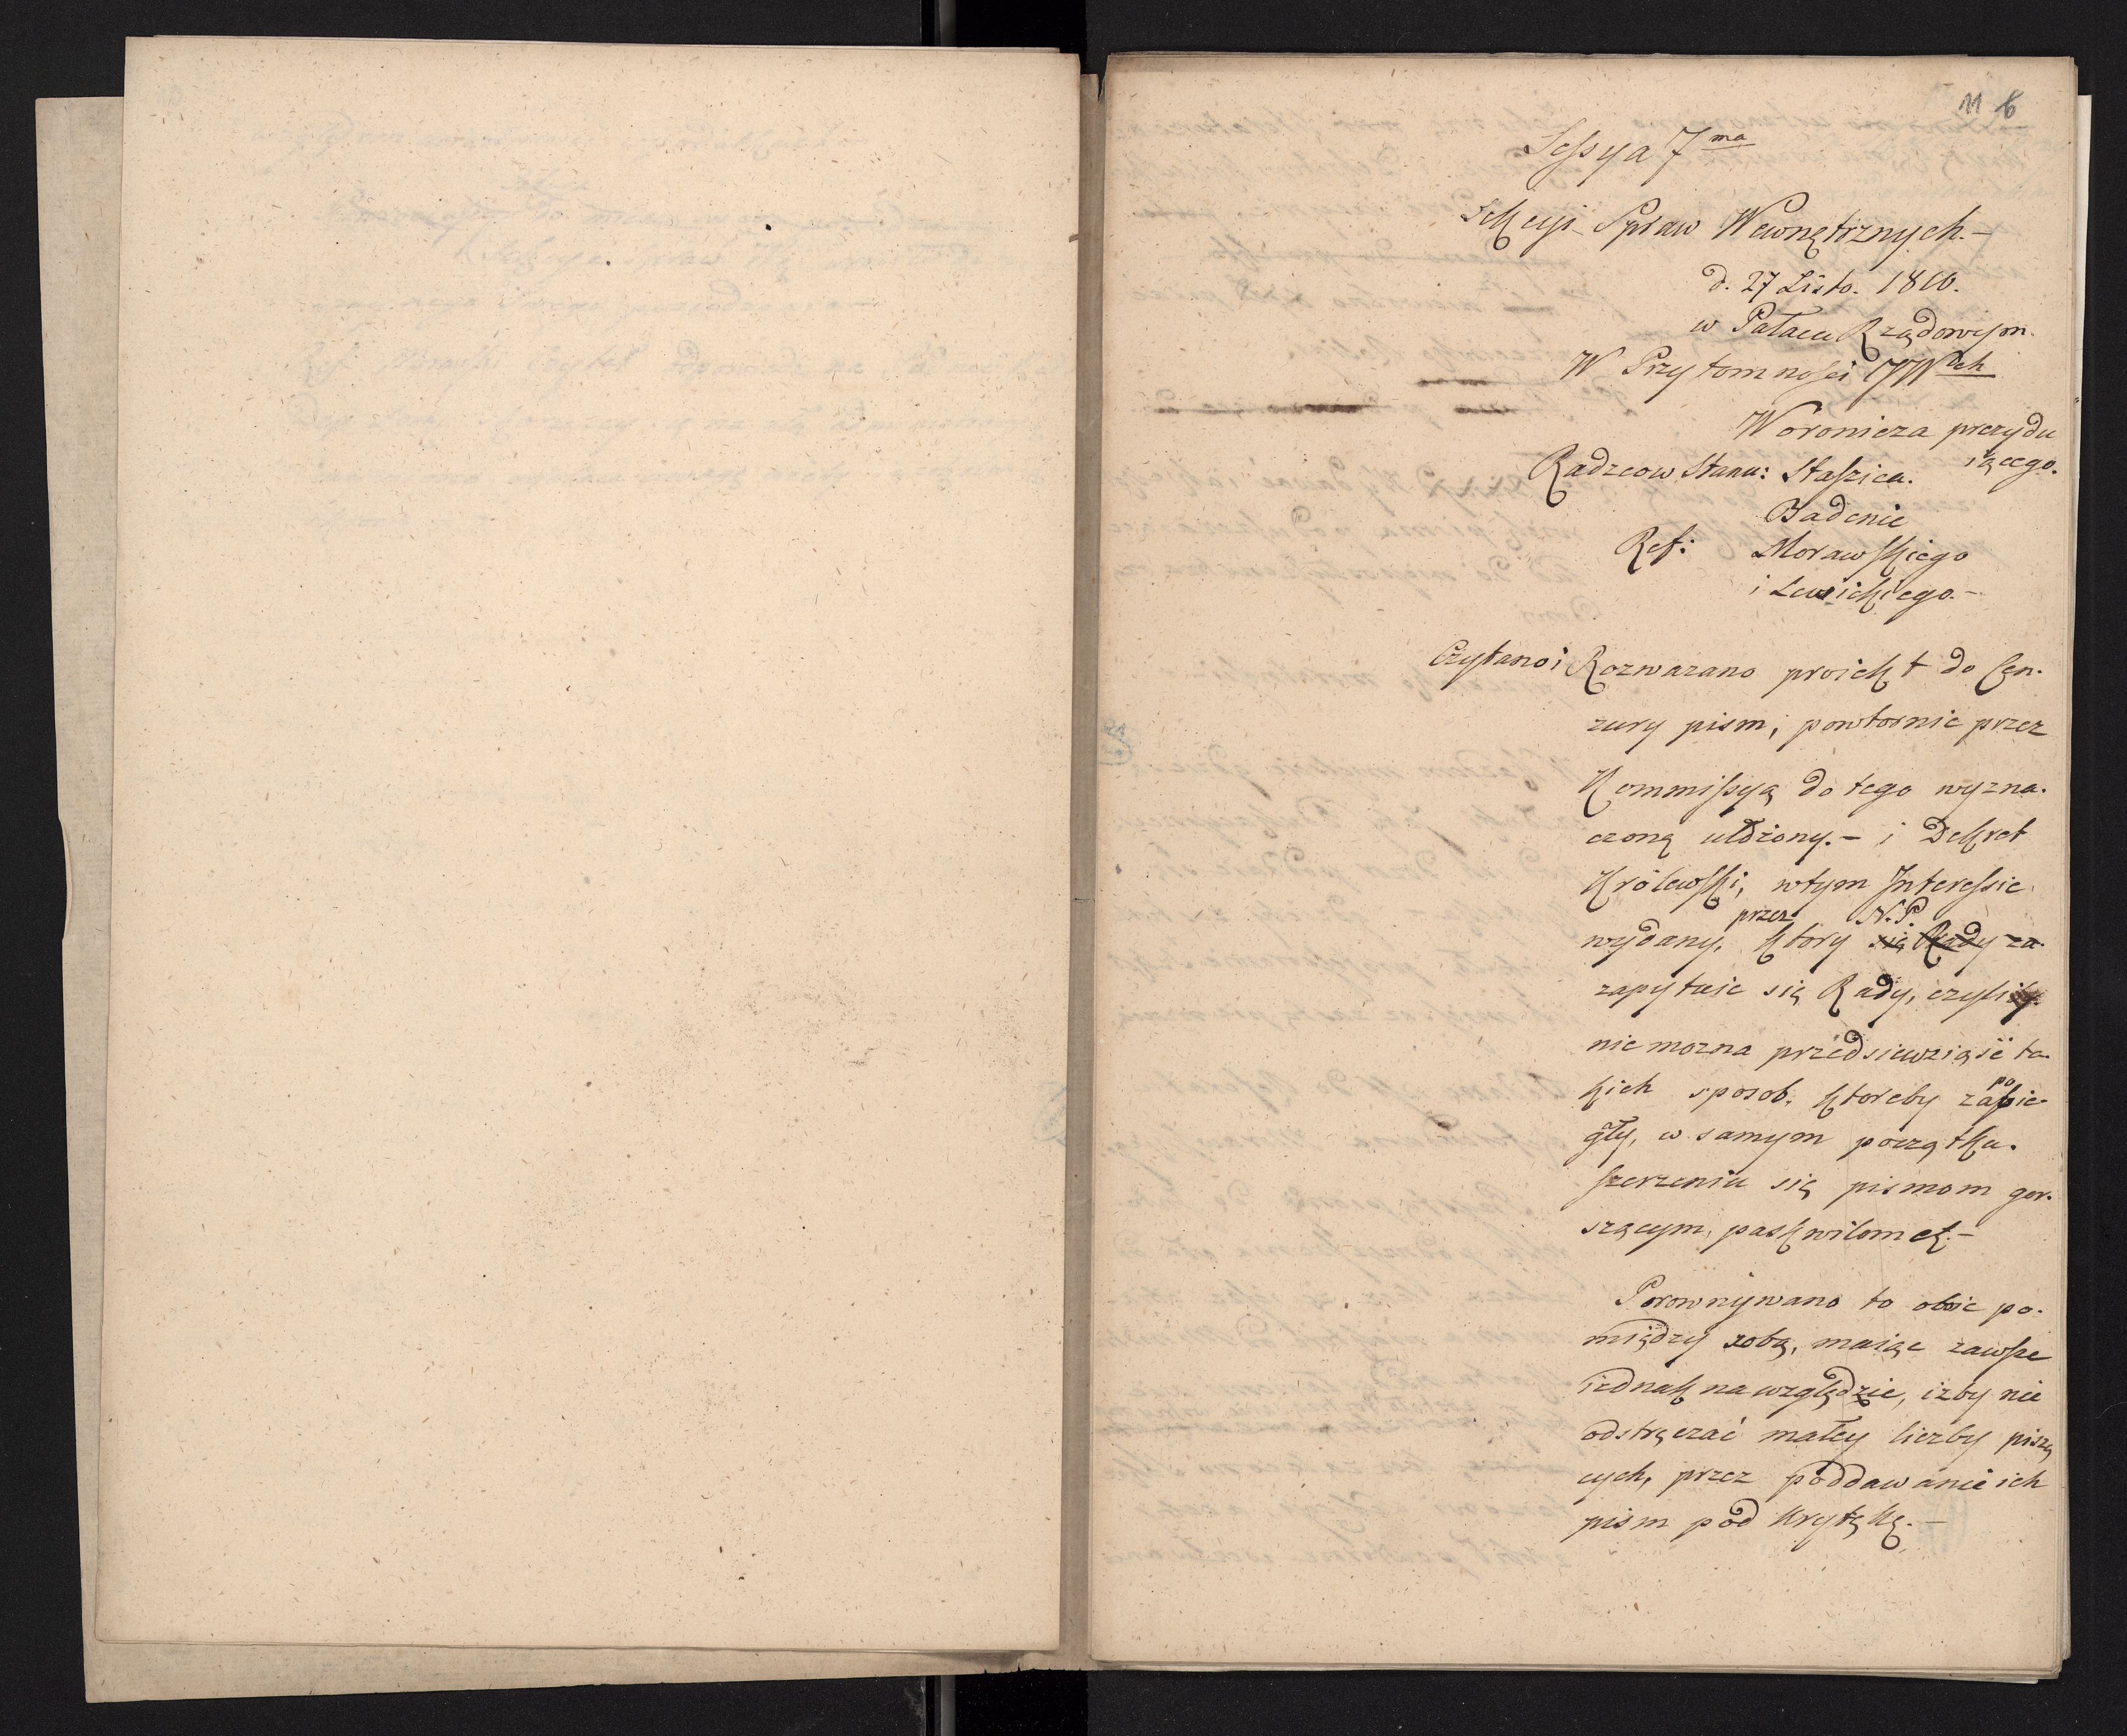 11 6
Sessya 7ma
Sekcyi Spraw Wewnętrznych.-
d. 27 Listo. 1810.
w Pałacu Rządowym.
W Przytomności JWWch
Woronicza prezydu
iącego.
Radzcow Stanu: Staszica.
Badenie
Ref: Morawskiego
i Lewickiego.-
Czytano i Rozwazano proiekt do Cen-
zury pism, powtornie przez
Kommissyą do tego wyzna-
czoną ułożony.- i Dekret
Królewski, wtym Interessie
przez N.P.
wydany, ktory się Rady za-
zapytuie się Rady, czyli
nie mozna przedsiewziąść ta-
kich sposob. ktoreby zapobie-
gły, w samym początku.
szerzeniu się pismom gor-
szącym, paskwilom et.-
Porownywano to oboie po-
między sobą, maiąc zawsze
iednak na względzie, izby nie
odstręczać małey liczby piszą
cych, przez poddawanie ich
pism pod krytykę.-